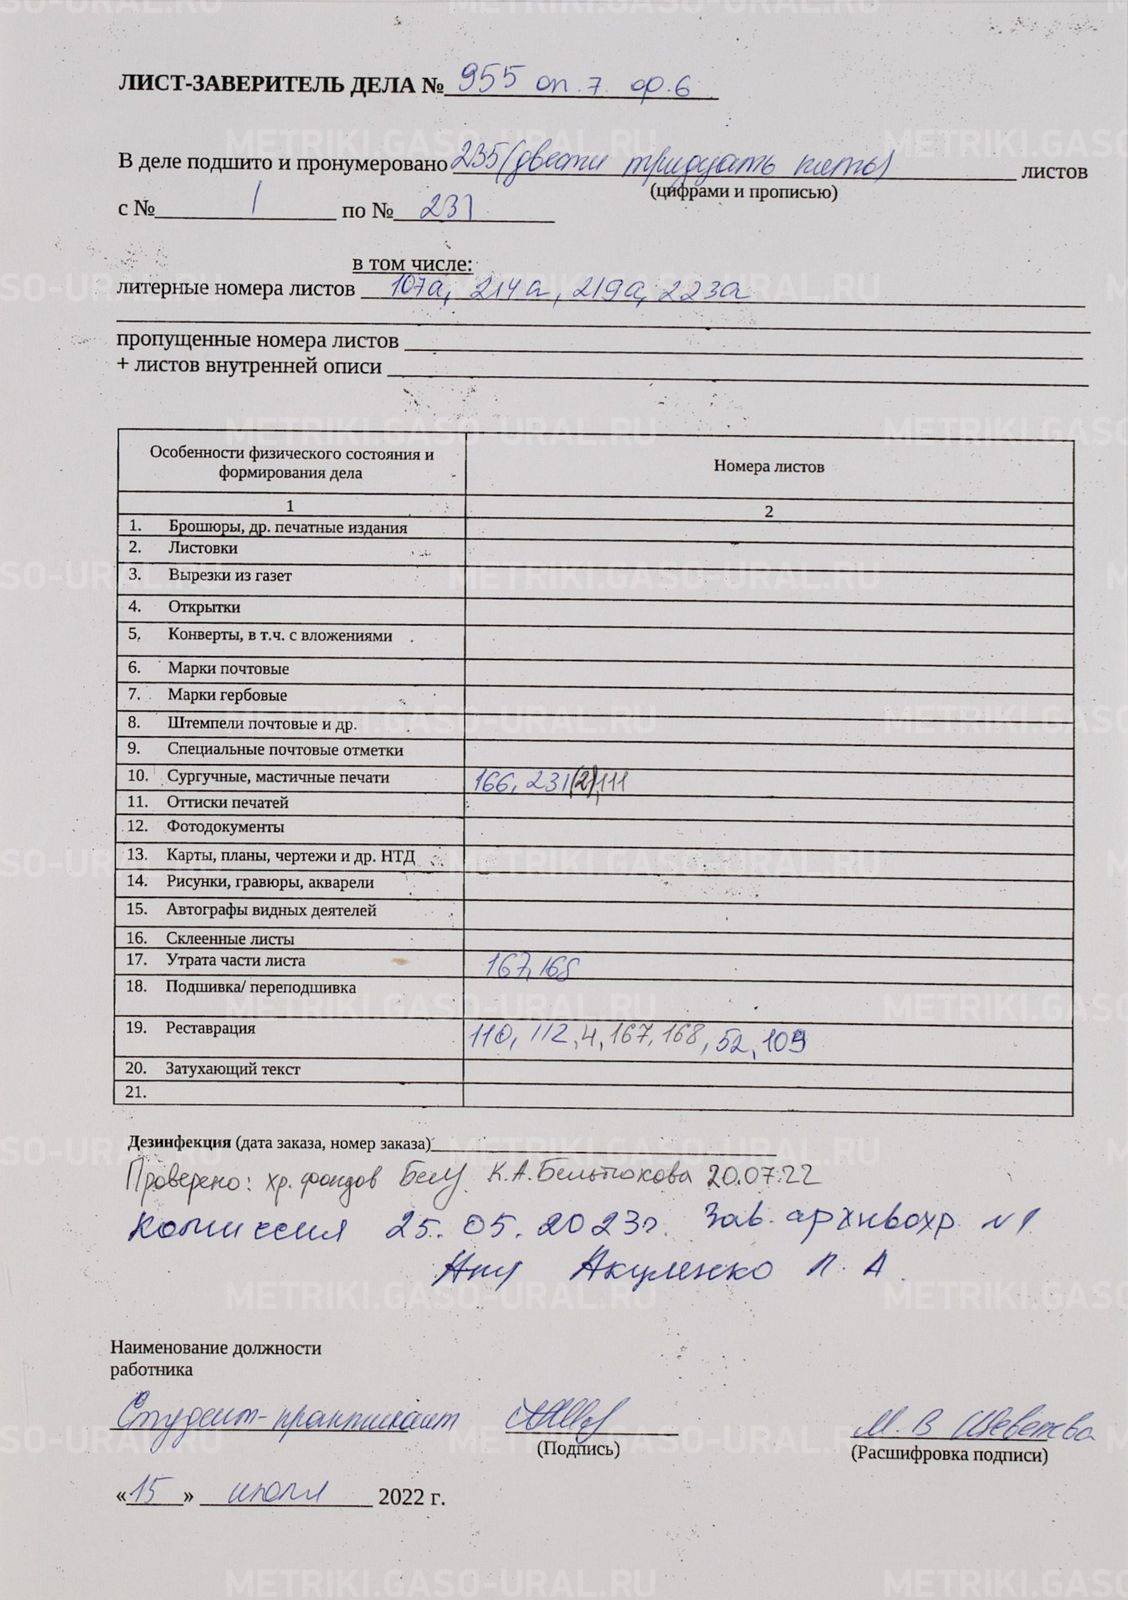 ЛИСТ-ЗАВЕРИТЕЛЬ ДЕЛА № 955 оп.7. ф.6
В деле подшито и пронумеровано 235 (двести тридцать пять) листов
(цифрами и прописью)
с № 1 по № 231
в том числе:
литерные номера листов 107а, 214а, 219а, 223а
пропущенные номера листов
+ листов внутренней описи
Особенности физического состояния и формирования дела Номера листов
1 2
1. Брошюры, др. печатные издания
2. Листовки
3. Вырезки из газет
4. Открытки
5. Конверты, в т.ч. с вложениями
6. Марки почтовые
7. Марки гербовые
8. Штемпели почтовые и др.
9. Специальные почтовые отметки
10. Сургучные, мастичные печати 166, 231(2),111
11. Оттиски печатей
12. Фотодокументы
13. Карты, планы, чертежи и др. НТД
14. Рисунки, гравюры, акварели
15. Автографы видных деятелей
16. Склеенные листы
17. Утрата части листа 167,168
18. Подшивка/ переподшивка
19. Реставрация 110, 112, 4, 167, 168, 52, 109
20. Затухающий текст
21.
Дезинфекция (дата заказа, номер заказа)
Проверено: хр. фондов К.А. Бельтюкова 20.07.22
Комиссия 25.05.2023г. Зав. архивохр. №1
Акуленко Л. А.
Наименование должности
работника
Студент-практикант М. В
(Подпись) (Расшифровка подписи)
«15» июля 2022 г.
METRIKI.GASO-URAL.RU